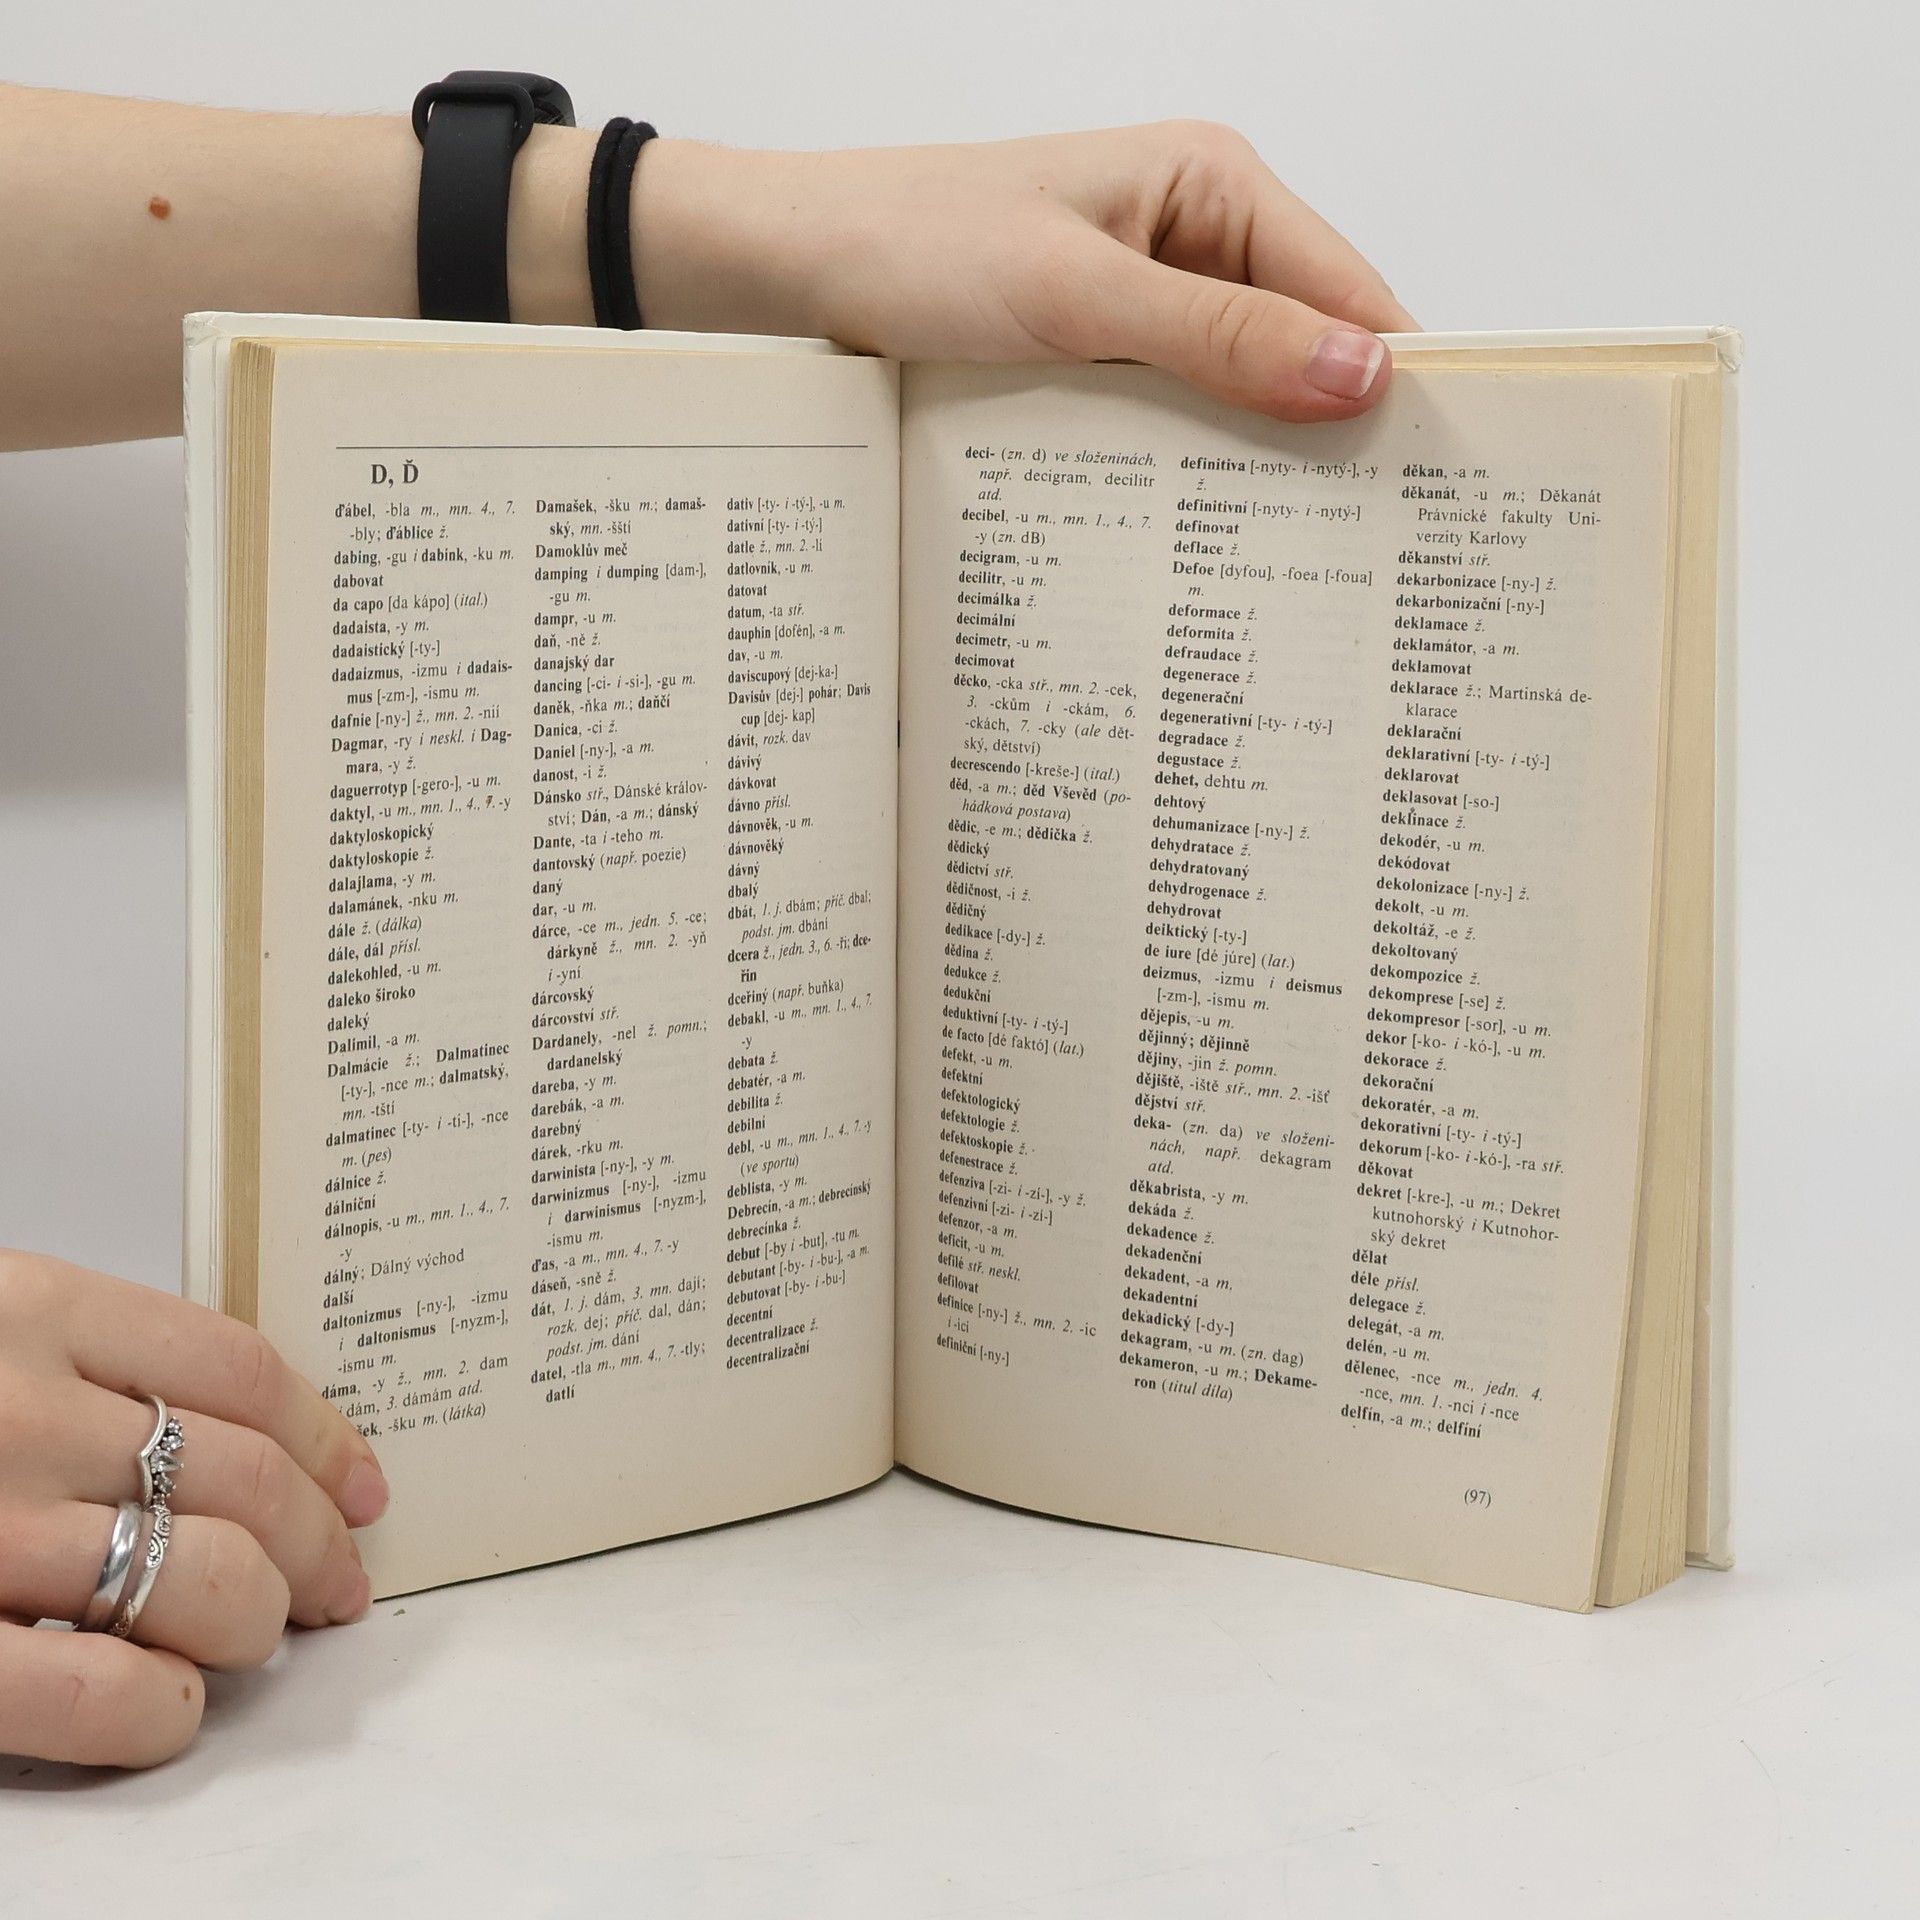 D, Ď
ďábel, -bla m., mn. 4., 7.
-bly; ďáblice ž.
dabing, -gu i dabink, -ku m.
dabovat
da capo [da kápo] (ital.)
dadaista, -y m.
dadaistický [-ty-]
dadaizmus, -izmu i dadais-
mus [-zm-], -ismu m.
dafnie [-ny-] ž., mn. 2. -nií
Dagmar, -ry i neskl. i Dag-
mara, -y ž.
daguerrotyp [-gero-], -u m.
daktyl, -u m., mn. 1., 4., 7. -y
daktyloskopický
daktyloskopie ž.
dalajlama, -y m.
dalamánek, -nku m.
dále ž. (dálka)
dále, dál přísl.
dalekohled, -u m.
daleko široko
daleký
Dalimil, -a m.
Dalmácie ž.; Dalmatinec
[-ty-], -nce m.; dalmatský,
mn. -tští
dalmatinec [-ty- i -ti-], -nce
m. (pes)
dálnice ž.
dálniční
dálnopis, -u m., mn. 1., 4., 7.
-y
dálný; Dálný východ
další
daltonizmus [-ny-], -izmu
i daltonismus [-nyzm-],
-ismu m.
dáma, -y ž., mn. 2. dam
i dám, 3. dámám atd.
šek, -šku m. (látka)
Damašek, -šku m.; damaš-
ský, mn. -šští
Damoklův meč
damping i dumping [dam-],
-gu m.
dampr, -u m.
daň, -ně ž.
danajský dar
dancing [-ci- i -si-], -gu m.
daněk, -ňka m.; daňčí
Danica, -ci ž.
Daniel [-ny-], -a m.
danost, -i ž.
Dánsko stř., Dánské králov-
ství; Dán, -a m.; dánský
Dante, -ta i -teho m.
dantovský (např. poezie)
daný
dar, -u m.
dárce, -ce m., jedn. 5. -ce;
dárkyně ž., mn. 2. -yň
i -yní
dárcovský
dárcovství stř.
Dardanely, -nel ž. pomn.;
dardanelský
dareba, -y m.
darebák, -a m.
darebný
dárek, -rku m.
darwinista [-ny-], -y m.
darwinizmus [-ny-], -izmu
i darwinismus [-nyzm-],
-ismu m.
ďas, -a m., mn. 4., 7. -y
dáseň, -sně ž.
dát, 1. j. dám, 3. mn. dají;
rozk. dej; příč. dal, dán;
podst. jm. dání
datel, -tla m., mn. 4., 7. -tly;
datlí
dativ [-ty- i -tý-], -u m.
dativní [-ty- i -tý-]
datle ž., mn. 2. -lí
datlovník, -u m.
datovat
datum, -ta stř.
dauphin [dofén], -a m.
dav, -u m.
daviscupový [dej-ka-]
Davisův [dej-] pohár; Davis
cup [dej- kap]
dávit, rozk. dav
dávivý
dávkovat
dávno přísl.
dávnověk, -u m.
dávnověký
dávný
dbalý
dbát, 1. j. dbám; příč. dbal;
podst. jm. dbání
dcera ž., jedn. 3., 6. -ři; dce-
řin
dceřiný (např. buňka)
debakl, -u m., mn. 1., 4., 7.
-y
debata ž.
debatér, -a m.
debilita ž.
debilní
debl, -u m., mn. 1., 4., 7. -y
(ve sportu)
deblista, -y m.
Debrecín, -a m.; debrecínský
debrecínka ž.
debut [-by i -but], -tu m.
debutant [-by- i -bu-], -a m.
debutovat [-by- i -bu-]
decentní
decentralizace ž.
decentralizační
deci- (zn. d) ve složeninách,
např. decigram, decilitr
atd.
decibel, -u m., mn. 1., 4., 7.
-y (zn. dB)
decigram, -u m.
decilitr, -u m.
decimálka ž.
decimální
decimetr, -u m.
decimovat
děcko, -cka stř., mn. 2. -cek,
3. -ckům i -ckám, 6.
-ckách, 7. -cky (ale dět-
ský, dětství)
decrescendo [-kreše-] (ital.)
děd, -a m.; děd Vševěd (po-
hádková postava)
dědic, -e m.; dědička ž.
dědický
dědictví stř.
dědičnost, -i ž.
dědičný
dedikace [-dy-] ž.
dědina ž.
dedukce ž.
dedukční
deduktivní [-ty- i -tý-]
de facto [dé faktó] (lat.)
defekt, -u m.
defektní
defektologický
defektologie ž.
defektoskopie ž.
defenestrace ž.
defenziva [-zi- i -zí-], -y ž.
defenzivní [-zi- i -zí-]
defenzor, -a m.
deficit, -u m.
defilé stř. neskl.
defilovat
definice [-ny-] ž., mn. 2. -ic
i -icí
definiční [-ny-]
definitiva [-nyty- i -nytý-], -y
ž.
definitivní [-nyty- i -nytý-]
definovat
deflace ž.
Defoe [dyfou], -foea [-foua]
m.
deformace ž.
deformita ž.
defraudace ž.
degenerace ž.
degenerační
degenerativní [-ty- i -tý-]
degradace ž.
degustace ž.
dehet, dehtu m.
dehtový
dehumanizace [-ny-] ž.
dehydratace ž.
dehydratovaný
dehydrogenace ž.
dehydrovat
deiktický [-ty-]
de iure [dé júre] (lat.)
deizmus, -izmu i deismus
[-zm-], -ismu m.
dějepis, -u m.
dějinný; dějinně
dějiny, -jin ž. pomn.
dějiště, -iště stř., mn. 2. -išť
dějství stř.
deka- (zn. da) ve složeni-
nách, např. dekagram
atd.
děkabrista, -y m.
dekáda ž.
dekadence ž.
dekadenční
dekadent, -a m.
dekadentní
dekadický [-dy-]
dekagram, -u m. (zn. dag)
dekameron, -u m.; Dekame-
ron (titul díla)
děkan, -a m.
děkanát, -u m.; Děkanát
Právnické fakulty Uni-
verzity Karlovy
děkanství stř.
dekarbonizace [-ny-] ž.
dekarbonizační [-ny-]
deklamace ž.
deklamátor, -a m.
deklamovat
deklarace ž.; Martinská de-
klarace
deklarační
deklarativní [-ty- i -tý-]
deklarovat
deklasovat [-so-]
deklinace ž.
dekodér, -u m.
dekódovat
dekolonizace [-ny-] ž.
dekolt, -u m.
dekoltáž, -e ž.
dekoltovaný
dekompozice ž.
dekomprese [-se] ž.
dekompresor [-sor], -u m.
dekor [-ko- i -kó-], -u m.
dekorace ž.
dekorační
dekoratér, -a m.
dekorativní [-ty- i -tý-]
dekorum [-ko- i -kó-], -ra stř.
děkovat
dekret [-kre-], -u m.; Dekret
kutnohorský i Kutnohor-
ský dekret
dělat
déle přísl.
delegace ž.
delegát, -a m.
delén, -u m.
dělenec, -nce m., jedn. 4.
-nce, mn. 1. -nci i -nce
delfín, -a m.; delfíní
(97)